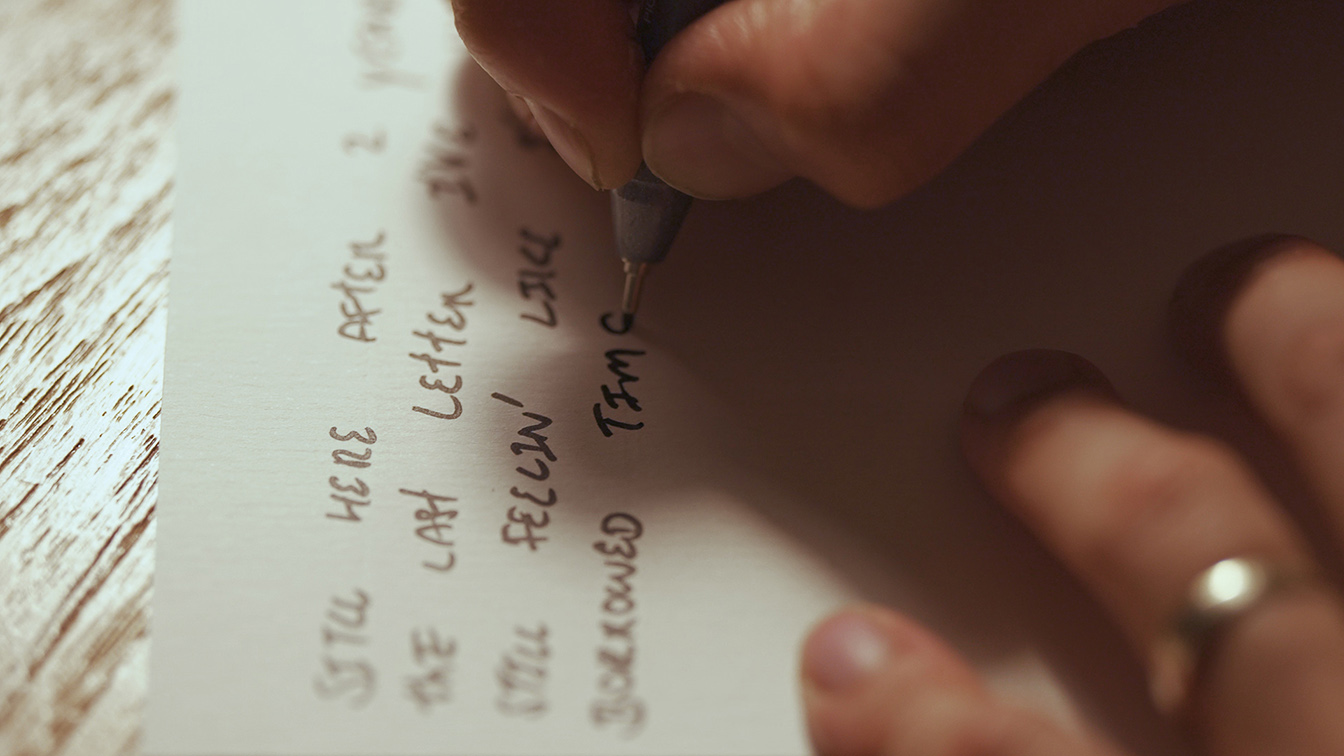 STILL HERE AFTER 2
THE LAST LETTER
STILL FEELIN' LIKE
BORROWED TIME